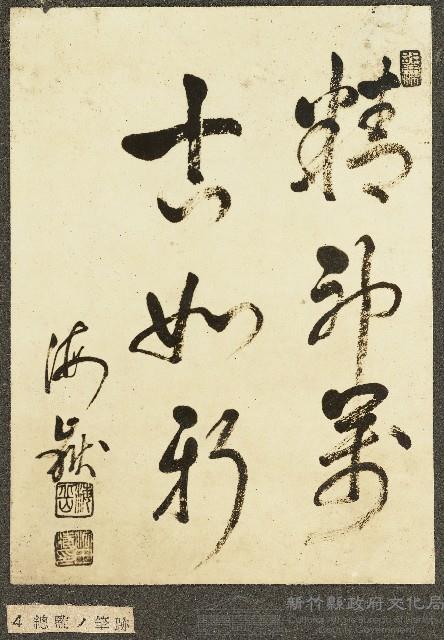 精神萬
古如新
海嶽
4 總監ノ筆跡
新竹縣政府文化局